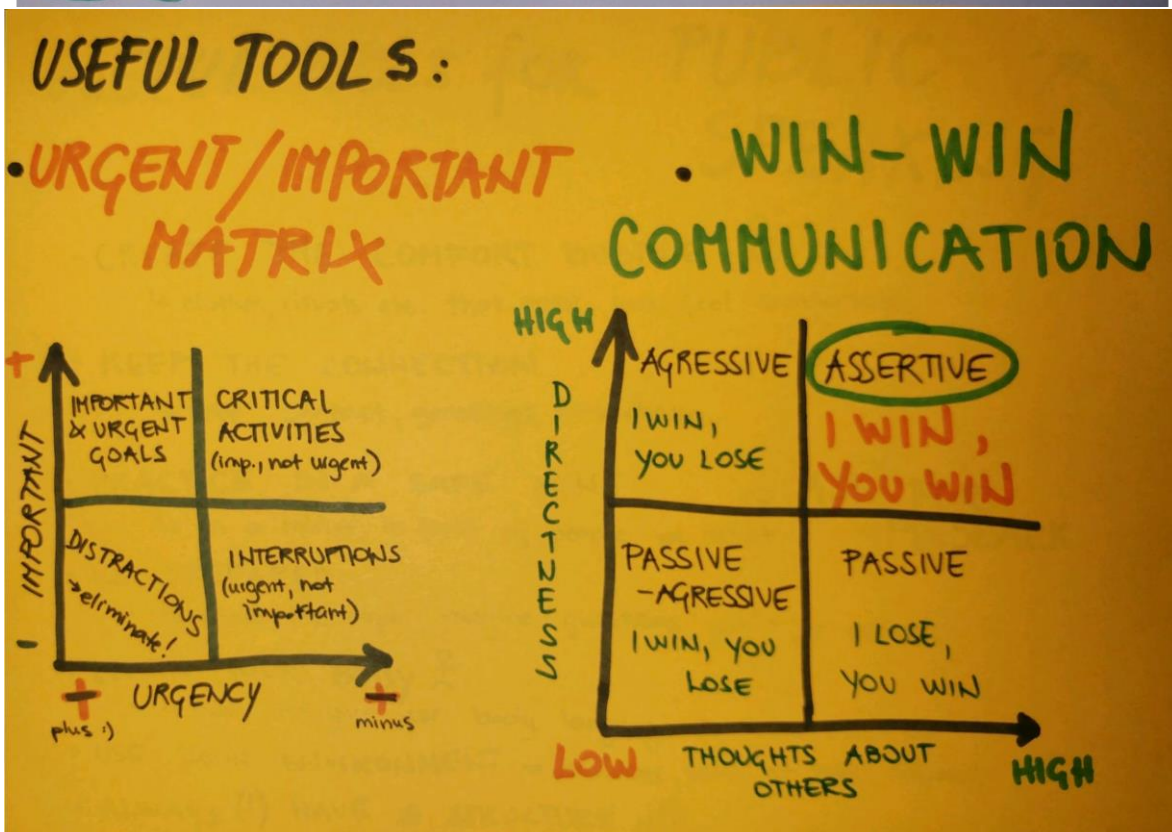 USEFUL TOOLS:
• URGENT/IMPORTANT
MATRIX
+
IMPORTANT
-
IMPORTANT
& URGENT
GOALS
CRITICAL
ACTIVITIES
(imp., not urgent)
DISTRACTIONS
→ eliminate!
INTERRUPTIONS
(urgent, not
important)
+
URGENCY
plus :)
minus
• WIN-WIN
COMMUNICATION
HIGH
DIRECTNESS
AGRESSIVE
I WIN,
YOU LOSE
ASSERTIVE
I WIN,
YOU WIN
PASSIVE
-AGRESSIVE
I WIN, YOU
LOSE
PASSIVE
I LOSE,
YOU WIN
LOW
THOUGHTS ABOUT
OTHERS
HIGH